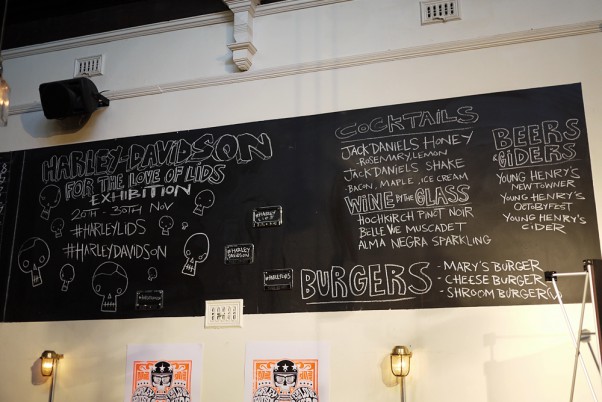 HARLEY-DAVIDSON
FOR THE LOVE OF LIDS
EXHIBITION
20TH - 30TH NOV
#HARLEYLIDS
#HARLEYDAVIDSON
#HARLEY
LIDS
#HARLEY
DAVIDSON
#HARLEYLIDS
COCKTAILS
JACK DANIELS HONEY
- ROSEMARY, LEMON
JACK DANIELS SHAKE
- BACON, MAPLE, ICE CREAM
WINE BY THE GLASS
HOCHKIRCH PINOT NOIR
BELLE VIE MUSCADET
ALMA NEGRA SPARKLING
BURGERS
- MARY'S BURGER
- CHEESE BURGER
- SHROOM BURGER (V)
BEERS
& CIDERS
YOUNG HENRY'S
NEWTOWNER
YOUNG HENRY'S
OCTOBYFEST
YOUNG HENRY'S
CIDER